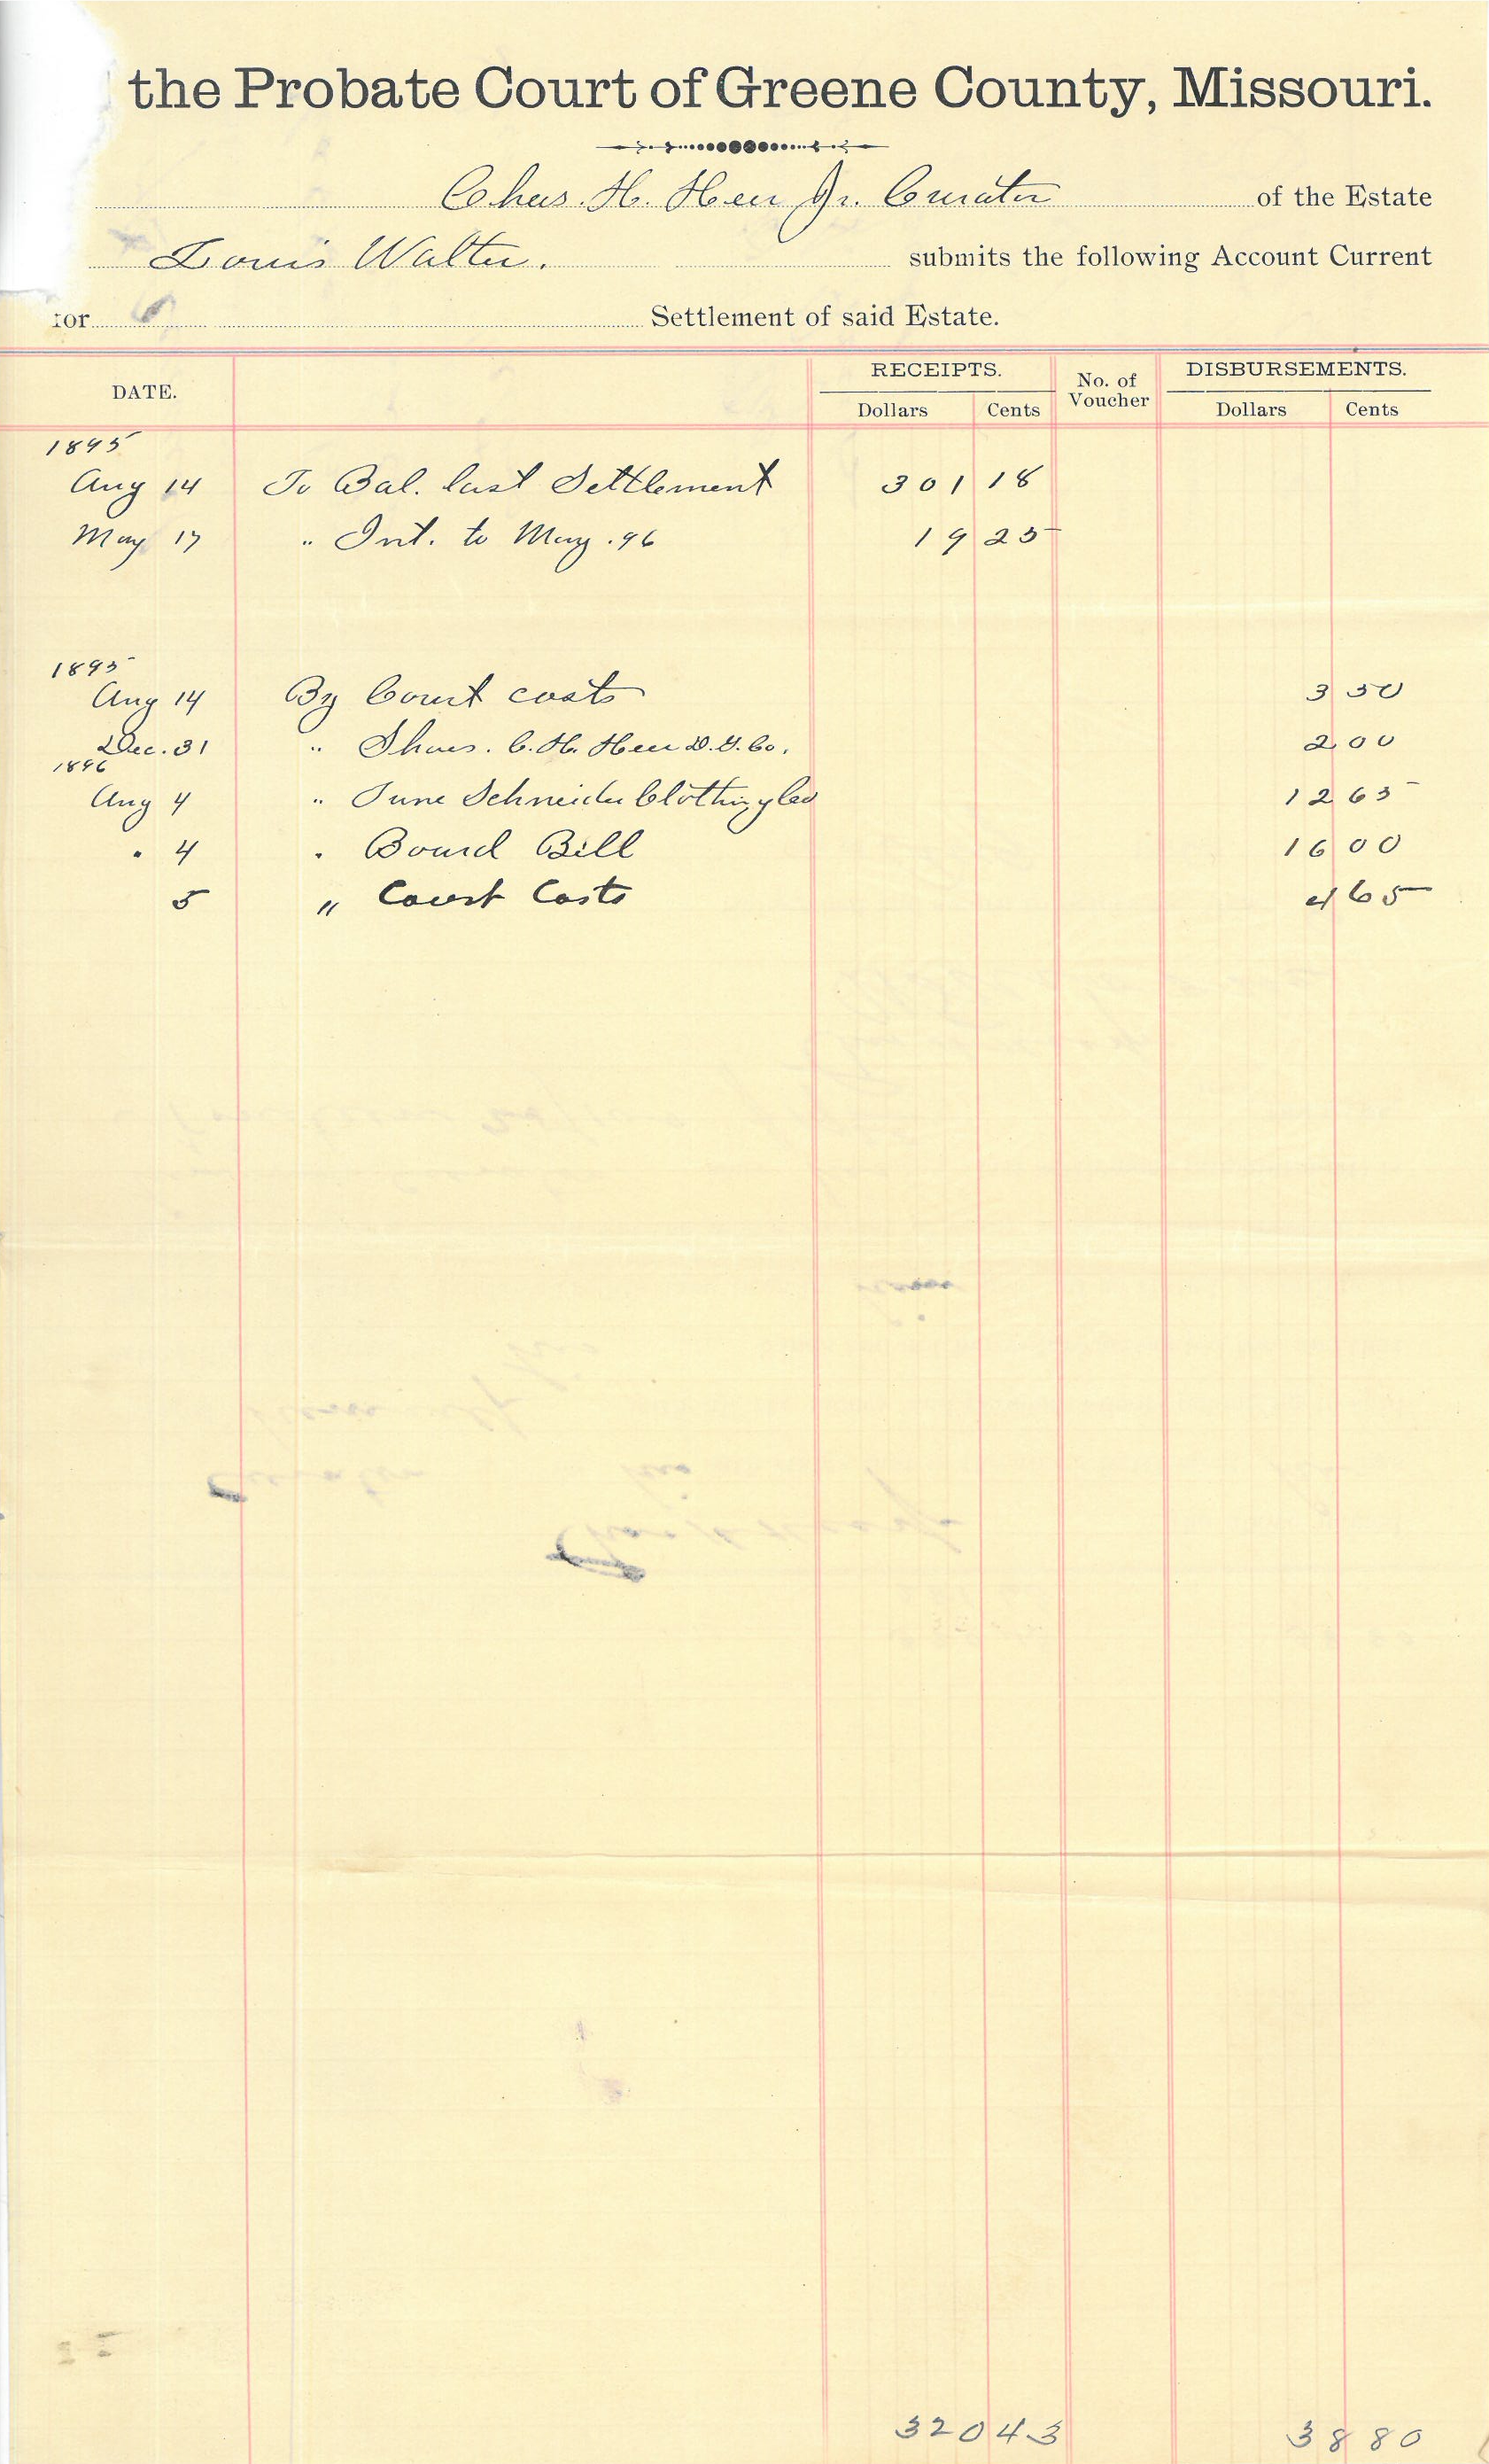 the Probate Court of Greene County, Missouri.
Chas. H. Heer Jr. Curator of the Estate
Louis Walter. submits the following Account Current
for Settlement of said Estate.
DATE. RECEIPTS. No. of Voucher DISBURSEMENTS.
Dollars Cents Dollars Cents
1895
Aug 14 To Bal. last Settlement 301 18
May 17 " Int. to May .96 19 25
1895
Aug 14 By Court costs 3 50
Dec. 31 " Shoes. C. H. Heer D. G. Co. 2 00
1896
Aug 4 " June Schneider Clothing Co 12 65
" 4 " Board Bill 16 00
5 " Court Costs 4 65
320 43 38 80